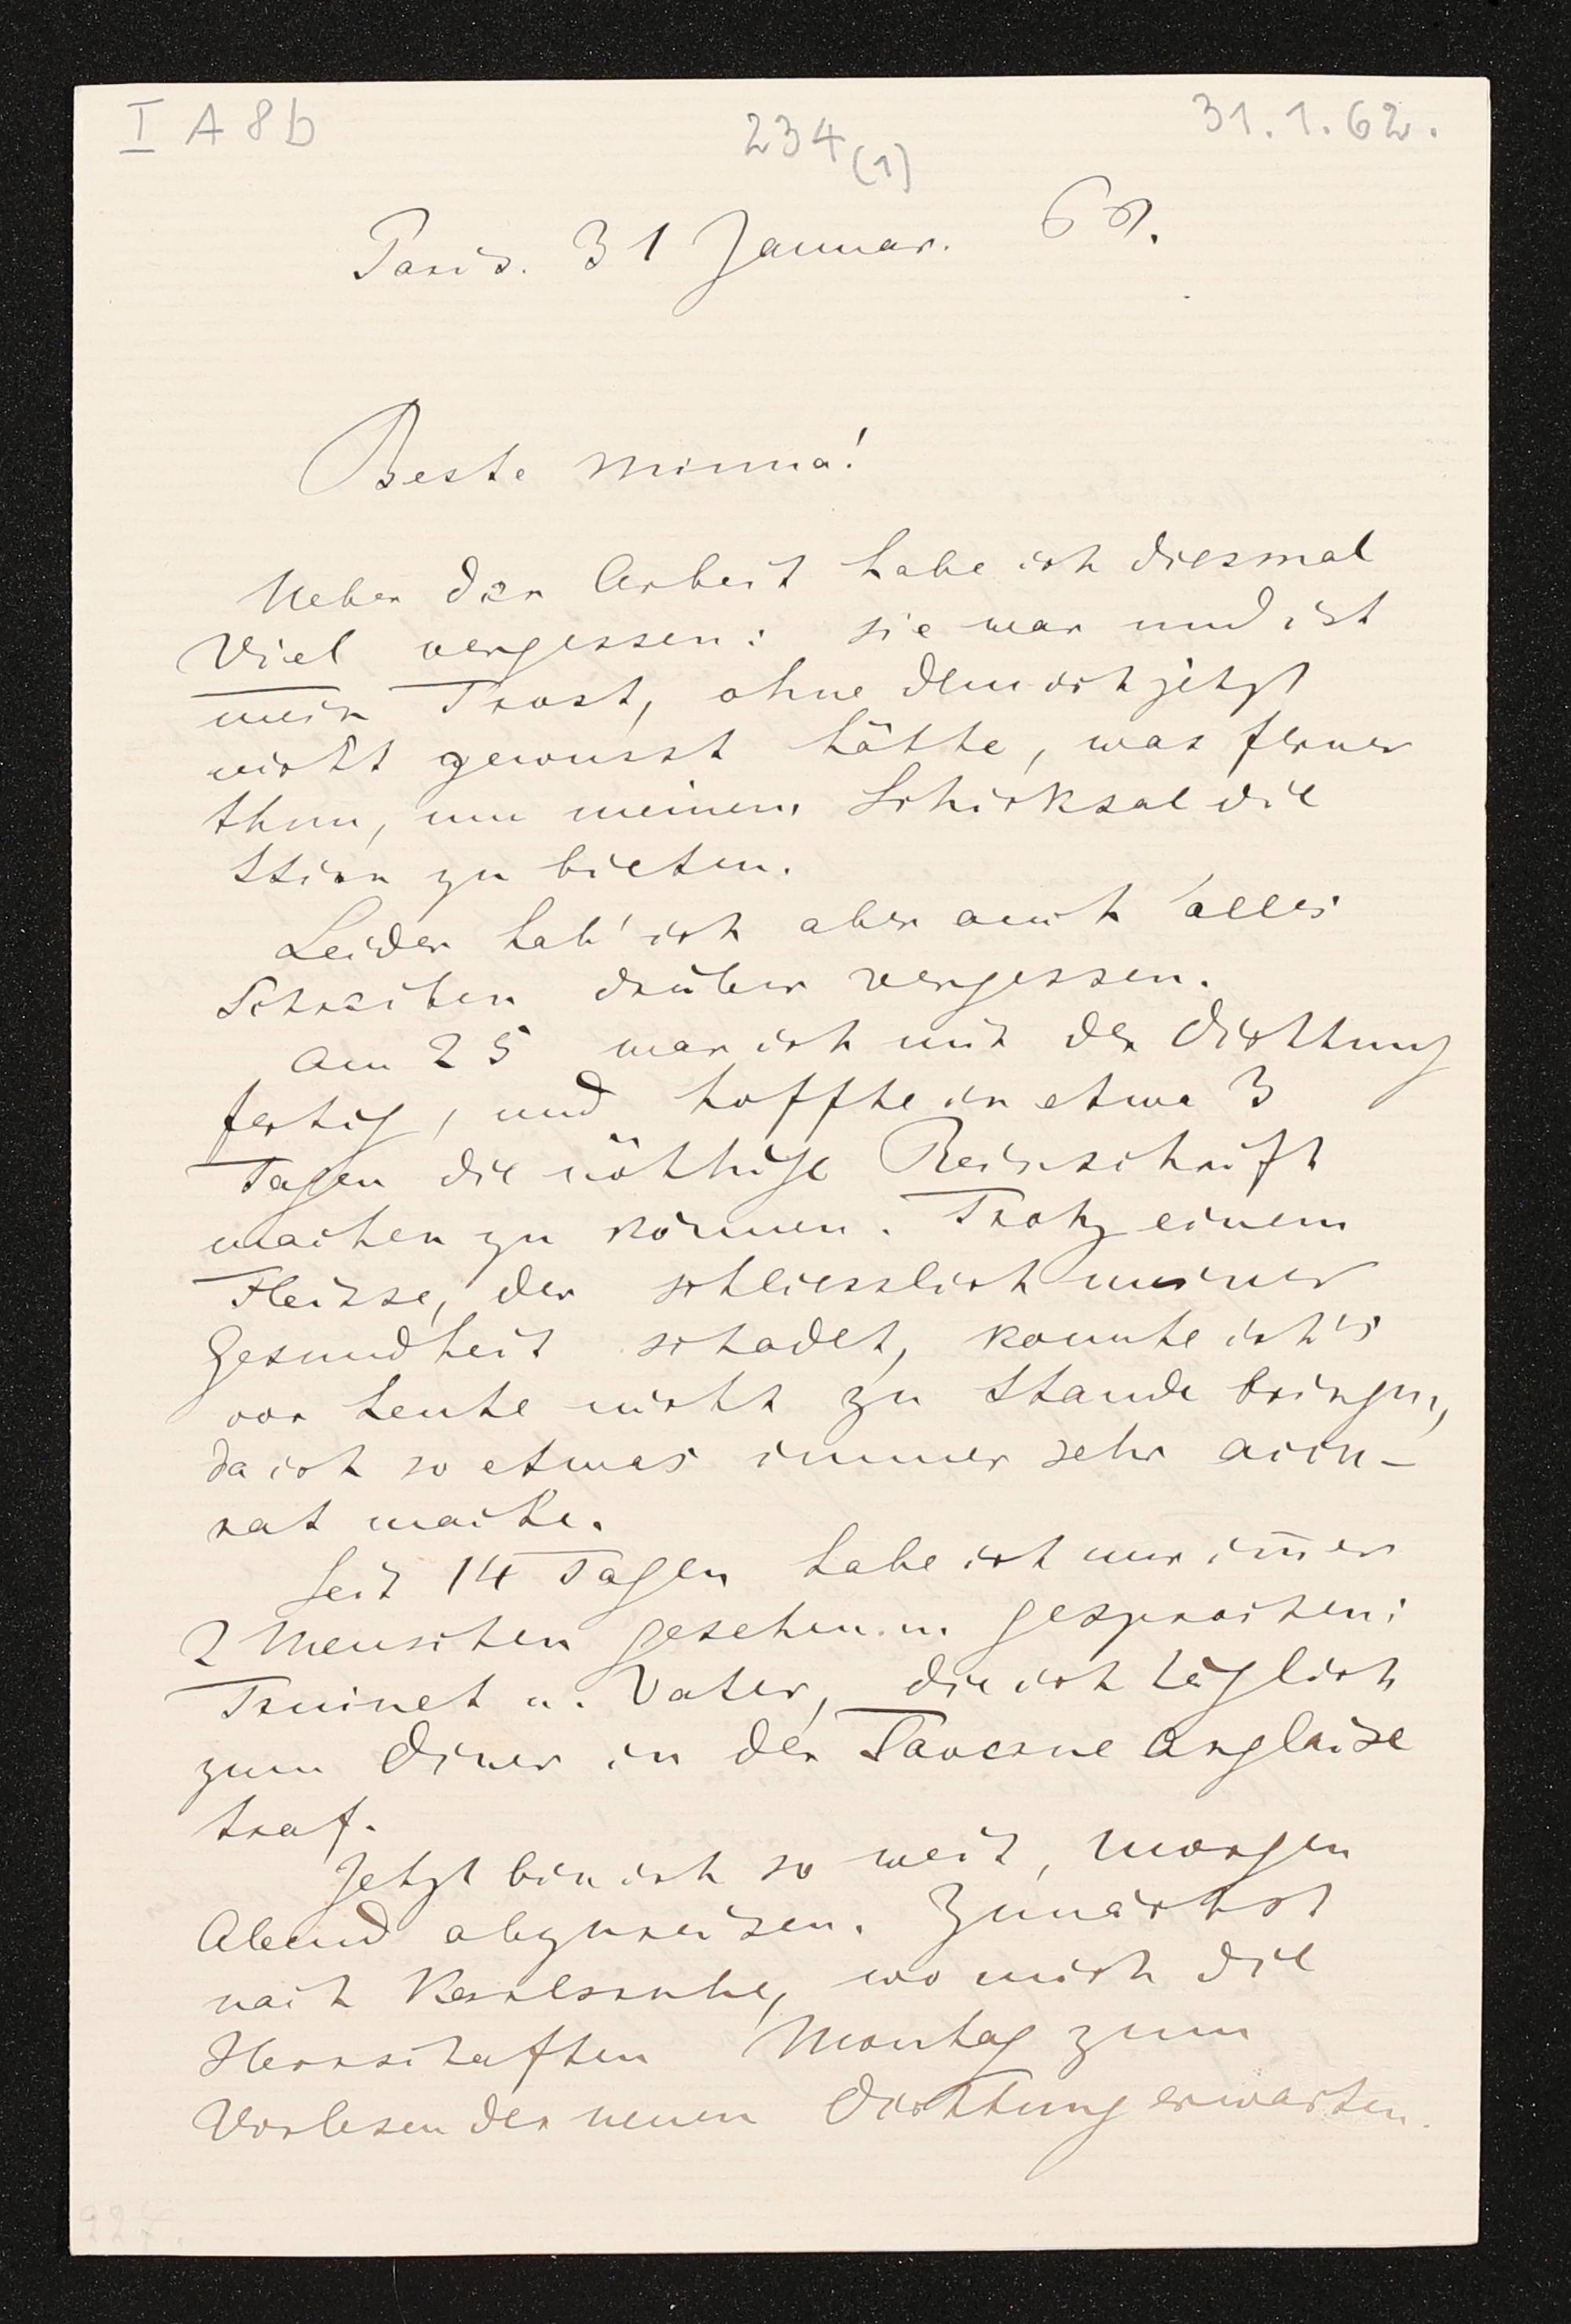 I A 8 b
234 (1)
31. 1. 62.
Paris. 31 Januar. 62.
Beste Minna!
Ueber der Arbeit habe ich diesmal
Viel vergessen: sie war und ist
mein Trost, ohne dem ich jetzt
nicht gewusst hätte, was ferner
thun, um meinem Schicksal die
Stirn zu bieten.
Leider hab' ich aber auch alles
Schreiben drüber vergessen.
Am 25 war ich mit der Dichtung
fertig, und hoffte in etwa 3
Tagen die nöthige Reinschrift
machen zu können. Trotz einem
Fleisse, der schliesslich meiner
Gesundheit schadet, konnte ich's
vor heute nicht zu Stande bringen,
da ich so etwas immer sehr accu-
rat mache.
Seit 14 Tagen habe ich nur im̅er
2 Menschen gesehen u. gesprochen:
Truinet u. Vater, die ich täglich
zum Diner in der Taverne Anglaise
traf.
Jetzt bin ich so weit, morgen
Abend abzureisen. Zunächst
nach Karlsruhe, wo mich die
Herrschaften Montag zum
Vorlesen der neuen Dichtung erwarten.